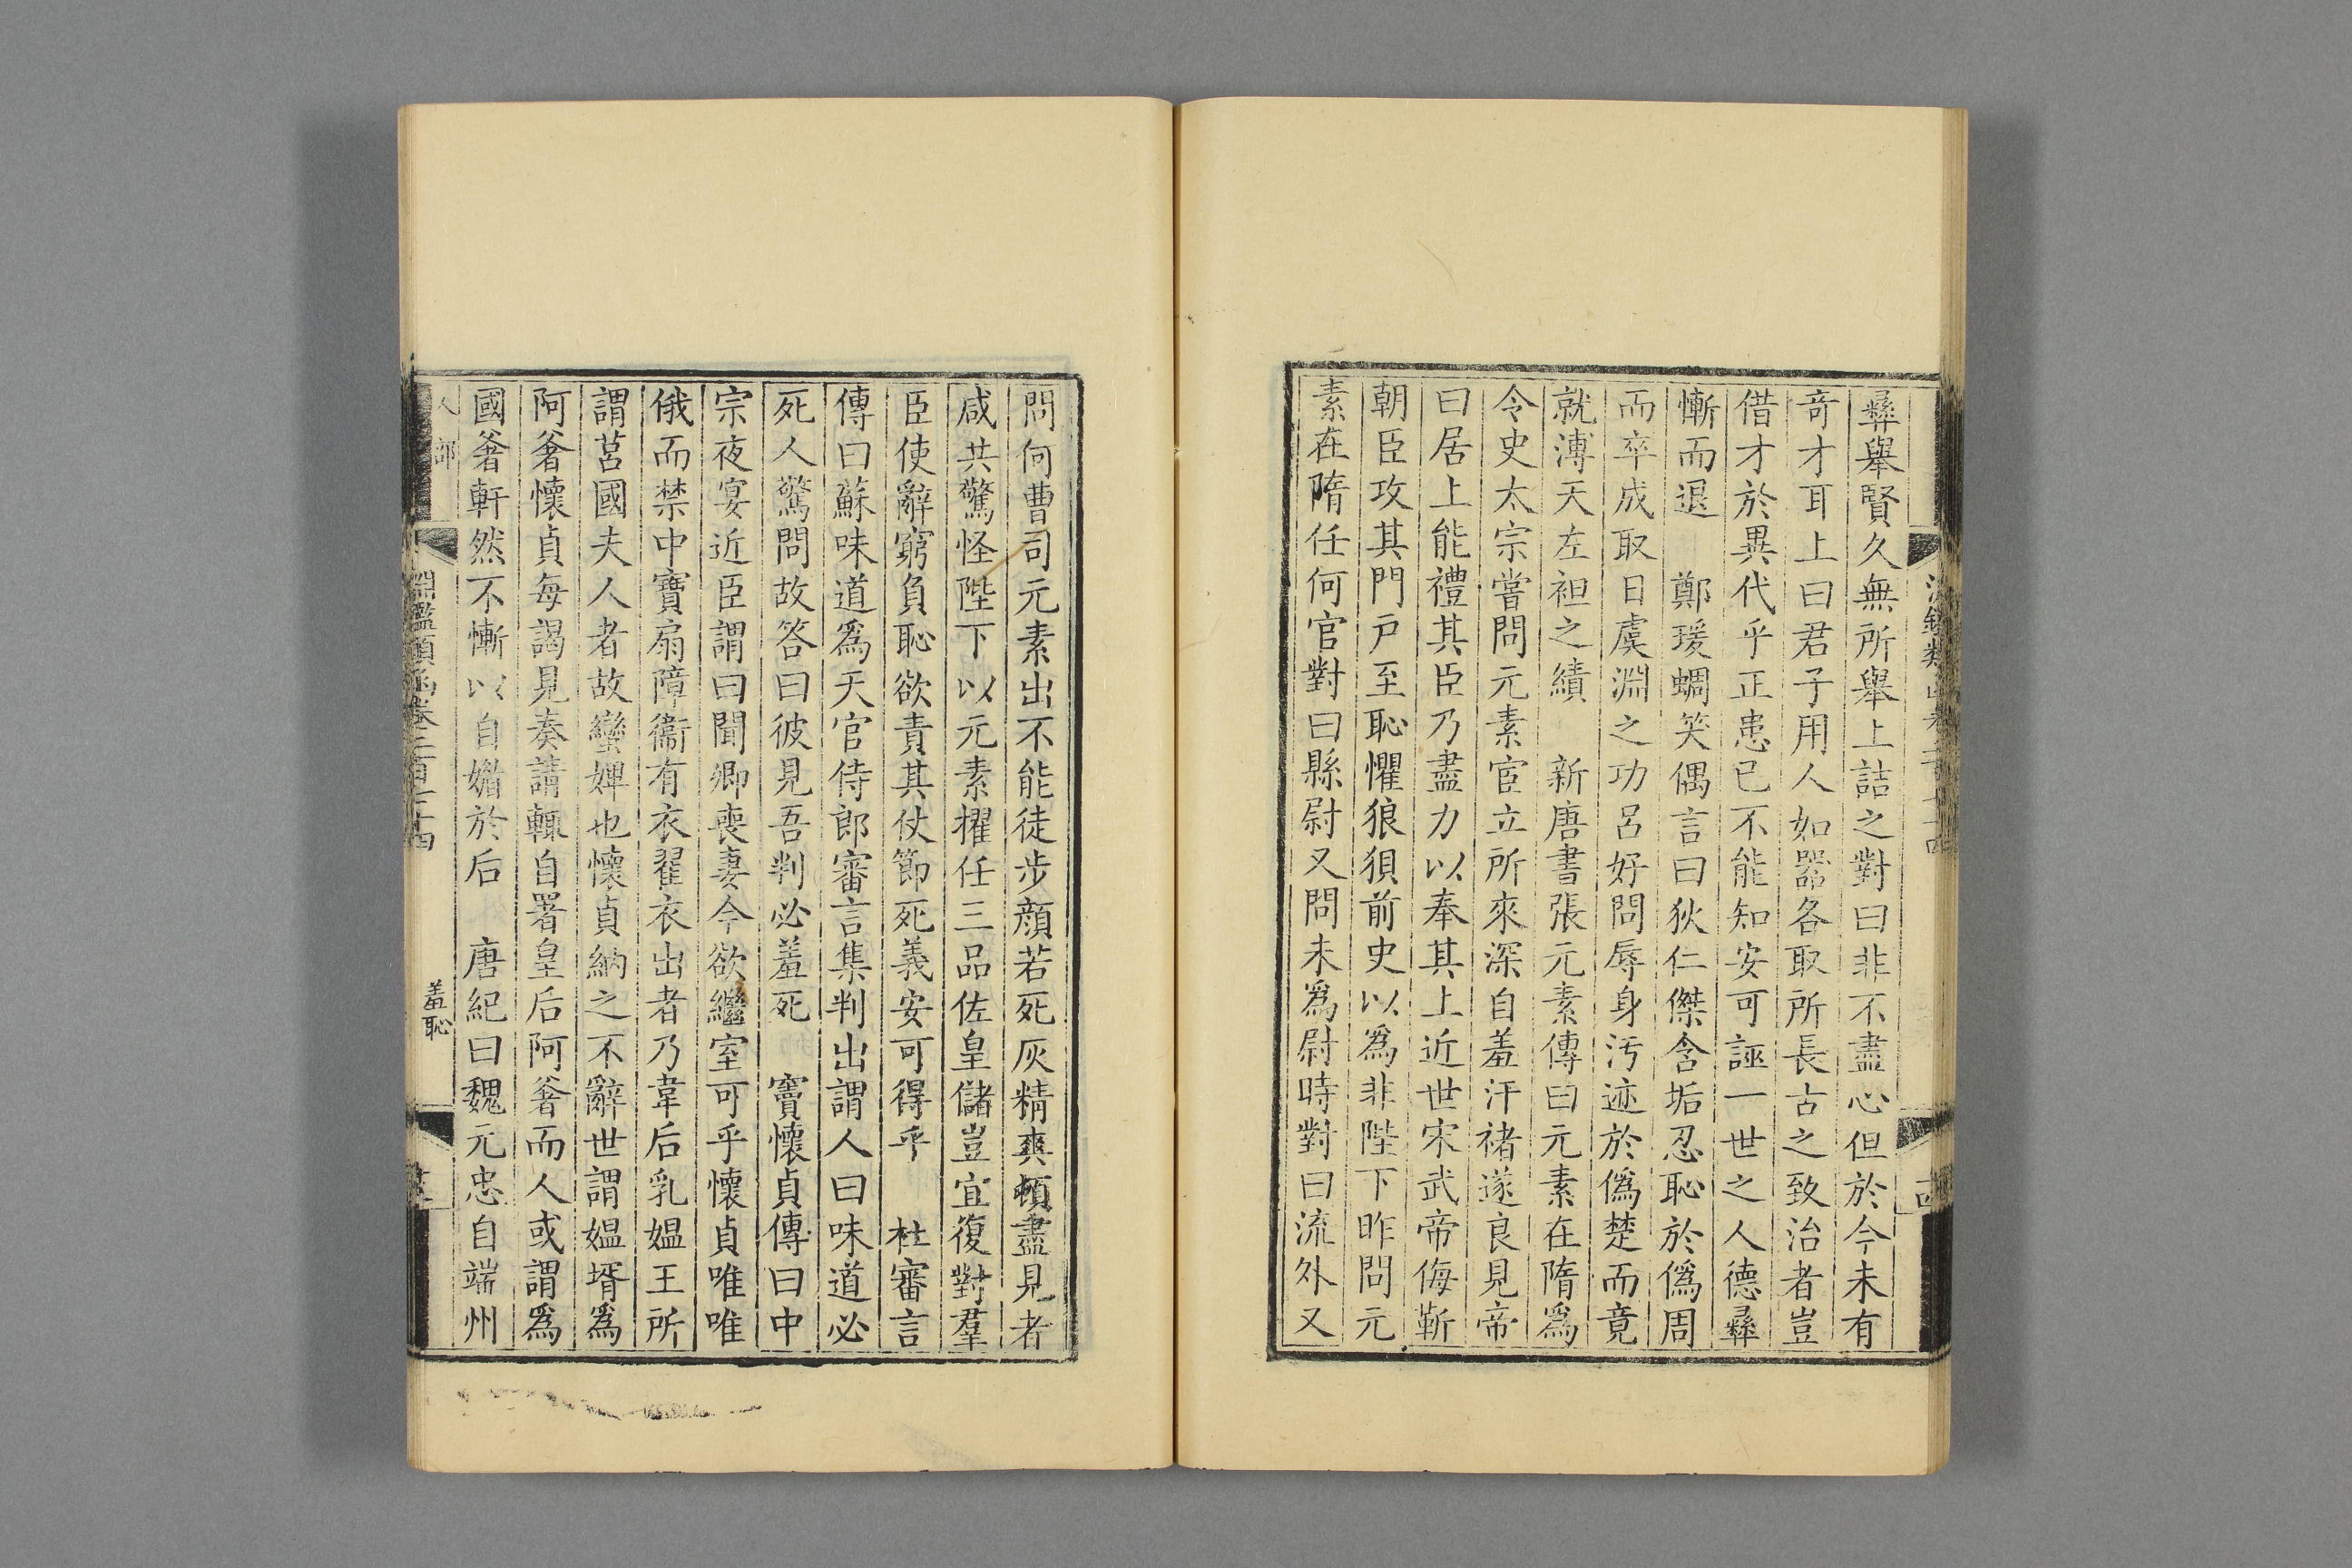 彞舉賢久無所舉上詰之對曰非不盡心但於今未有
奇才耳上曰君子用人如器各取所長古之致治者豈
借才於異代乎正患已不能知安可誣一世之人德彞
慚而退　鄭瑗蜩笑偶言曰狄仁傑含垢忍恥於僞周
而卒成取日虞淵之功呂好問辱身汚迹於僞楚而竟
就溥天左袒之績　新唐書張元素傳曰元素在隋爲
令史太宗嘗問元素宦立所來深自羞汗褚遂良見帝
曰居上能禮其臣乃盡力以奉其上近世宋武帝侮靳
朝臣攻其門戸至恥懼狼狽前史以爲非陛下昨問元
素在隋任何官對曰縣尉又問未爲尉時對曰流外又
問何曹司元素出不能徒步顔若死灰精爽頓盡見者
咸共驚怪陛下以元素擢任三品佐皇儲豈宜復對羣
臣使辭窮負恥欲責其仗節死義安可得乎　杜審言
傳曰蘇味道爲天官侍郎審言集判出謂人曰味道必
死人驚問故答曰彼見吾判必羞死　竇懷貞傳曰中
宗夜宴近臣謂曰聞卿喪妻今欲繼室可乎懷貞唯唯
俄而禁中寶扇障衞有衣翟衣出者乃韋后乳媼王所
謂莒國夫人者故蠻婢也懷貞納之不辭世謂媼壻爲
阿㸙懷貞每謁見奏請輒自署皇后阿㸙而人或謂爲
國㸙軒然不慚以自媚於后　唐紀曰魏元忠自端州
人部
淵鑑類函卷三百十四
羞恥